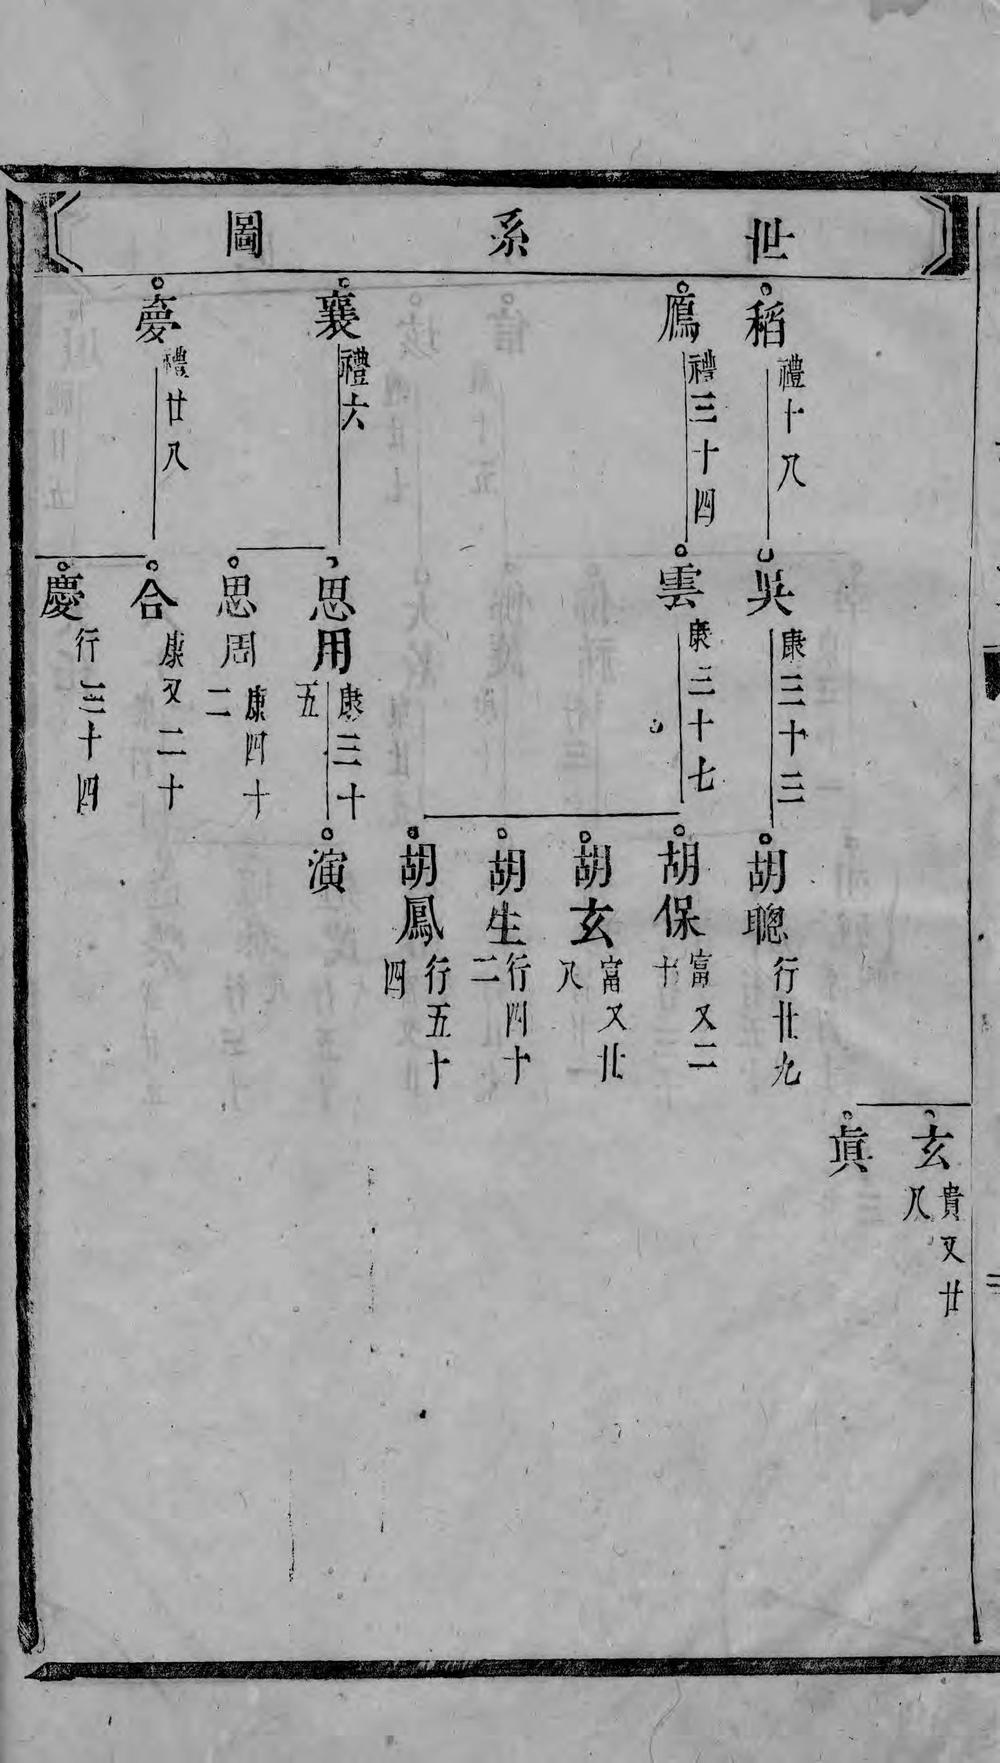 世系圖
玄
貴又廿
八
眞
稻
禮十八
吳
康三十三
胡聰
行廿九
鴈
禮三十四
雲
康三十七
胡保
富又二
十
胡玄
富又廿
八
胡生
行四十
二
胡鳳
行五十
四
襄
禮六
思用
康三十
五
演
思周
康四十
二
夢
禮廿八
合
康又二十
慶
行三十四